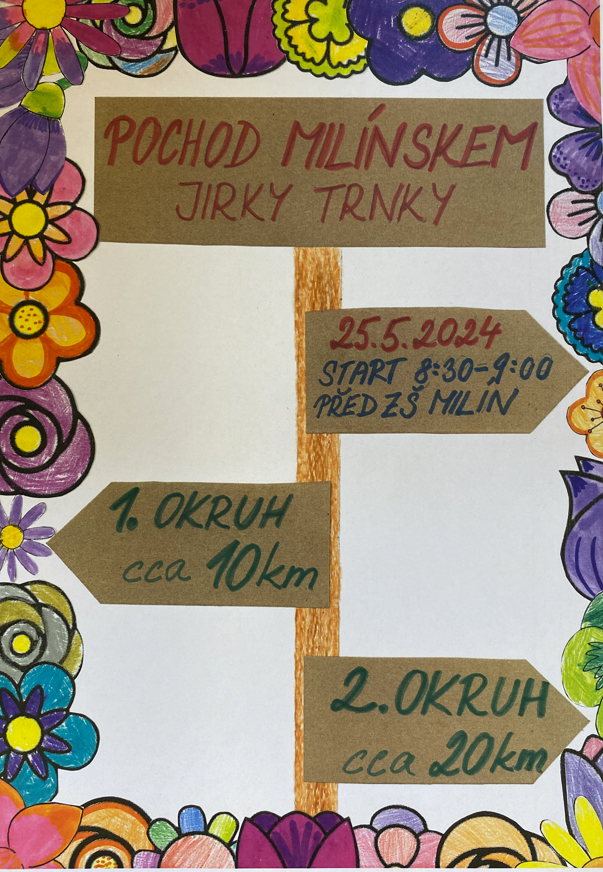 POCHOD MILÍNSKEM
JIRKY TRNKY
25.5.2024
START 8:30-9:00
PŘED ZŠ MILIN
1. OKRUH
cca 10km
2. OKRUH
cca 20km